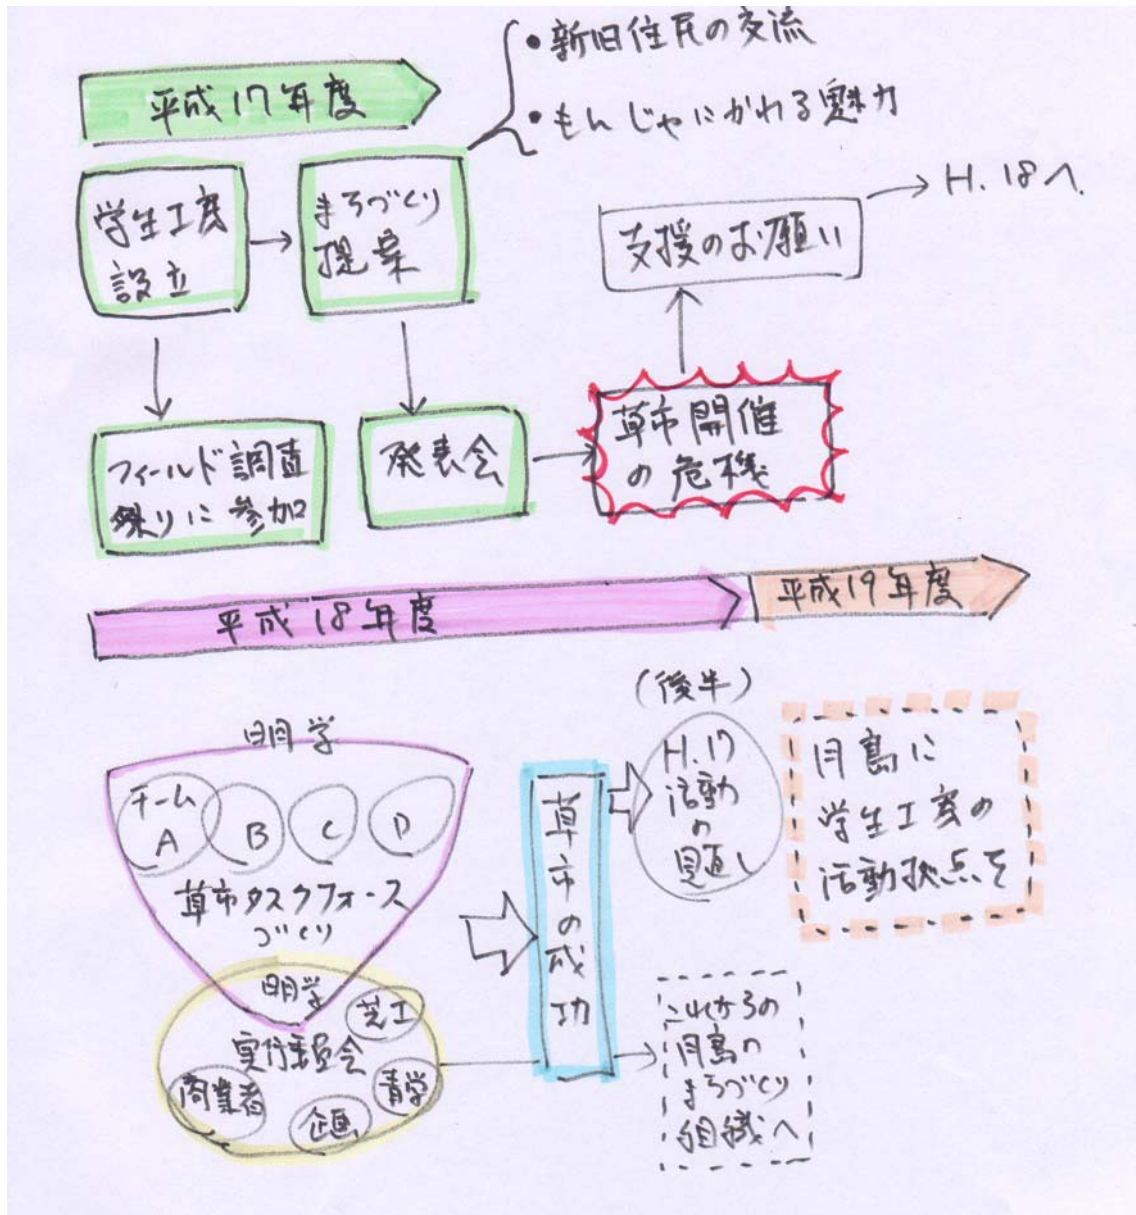 平成17年度
・新旧住民の交流
・もんじゃにかわる魅力
学生工房
設立
まちづくり
提案
支援のお願い
H.18へ
フィールド調査
祭りに参加
発表会
草市開催
の危機
平成18年度
平成19年度
明学
チーム
A
B
C
D
草市タスクフォース
づくり
明学
実行委員会
芝工
商業者
企画
青学
草市の成功
(後半)
H.17
活動
の
見直し
月島に
学生工房の
活動拠点を
これからの
月島の
まちづくり
組織へ